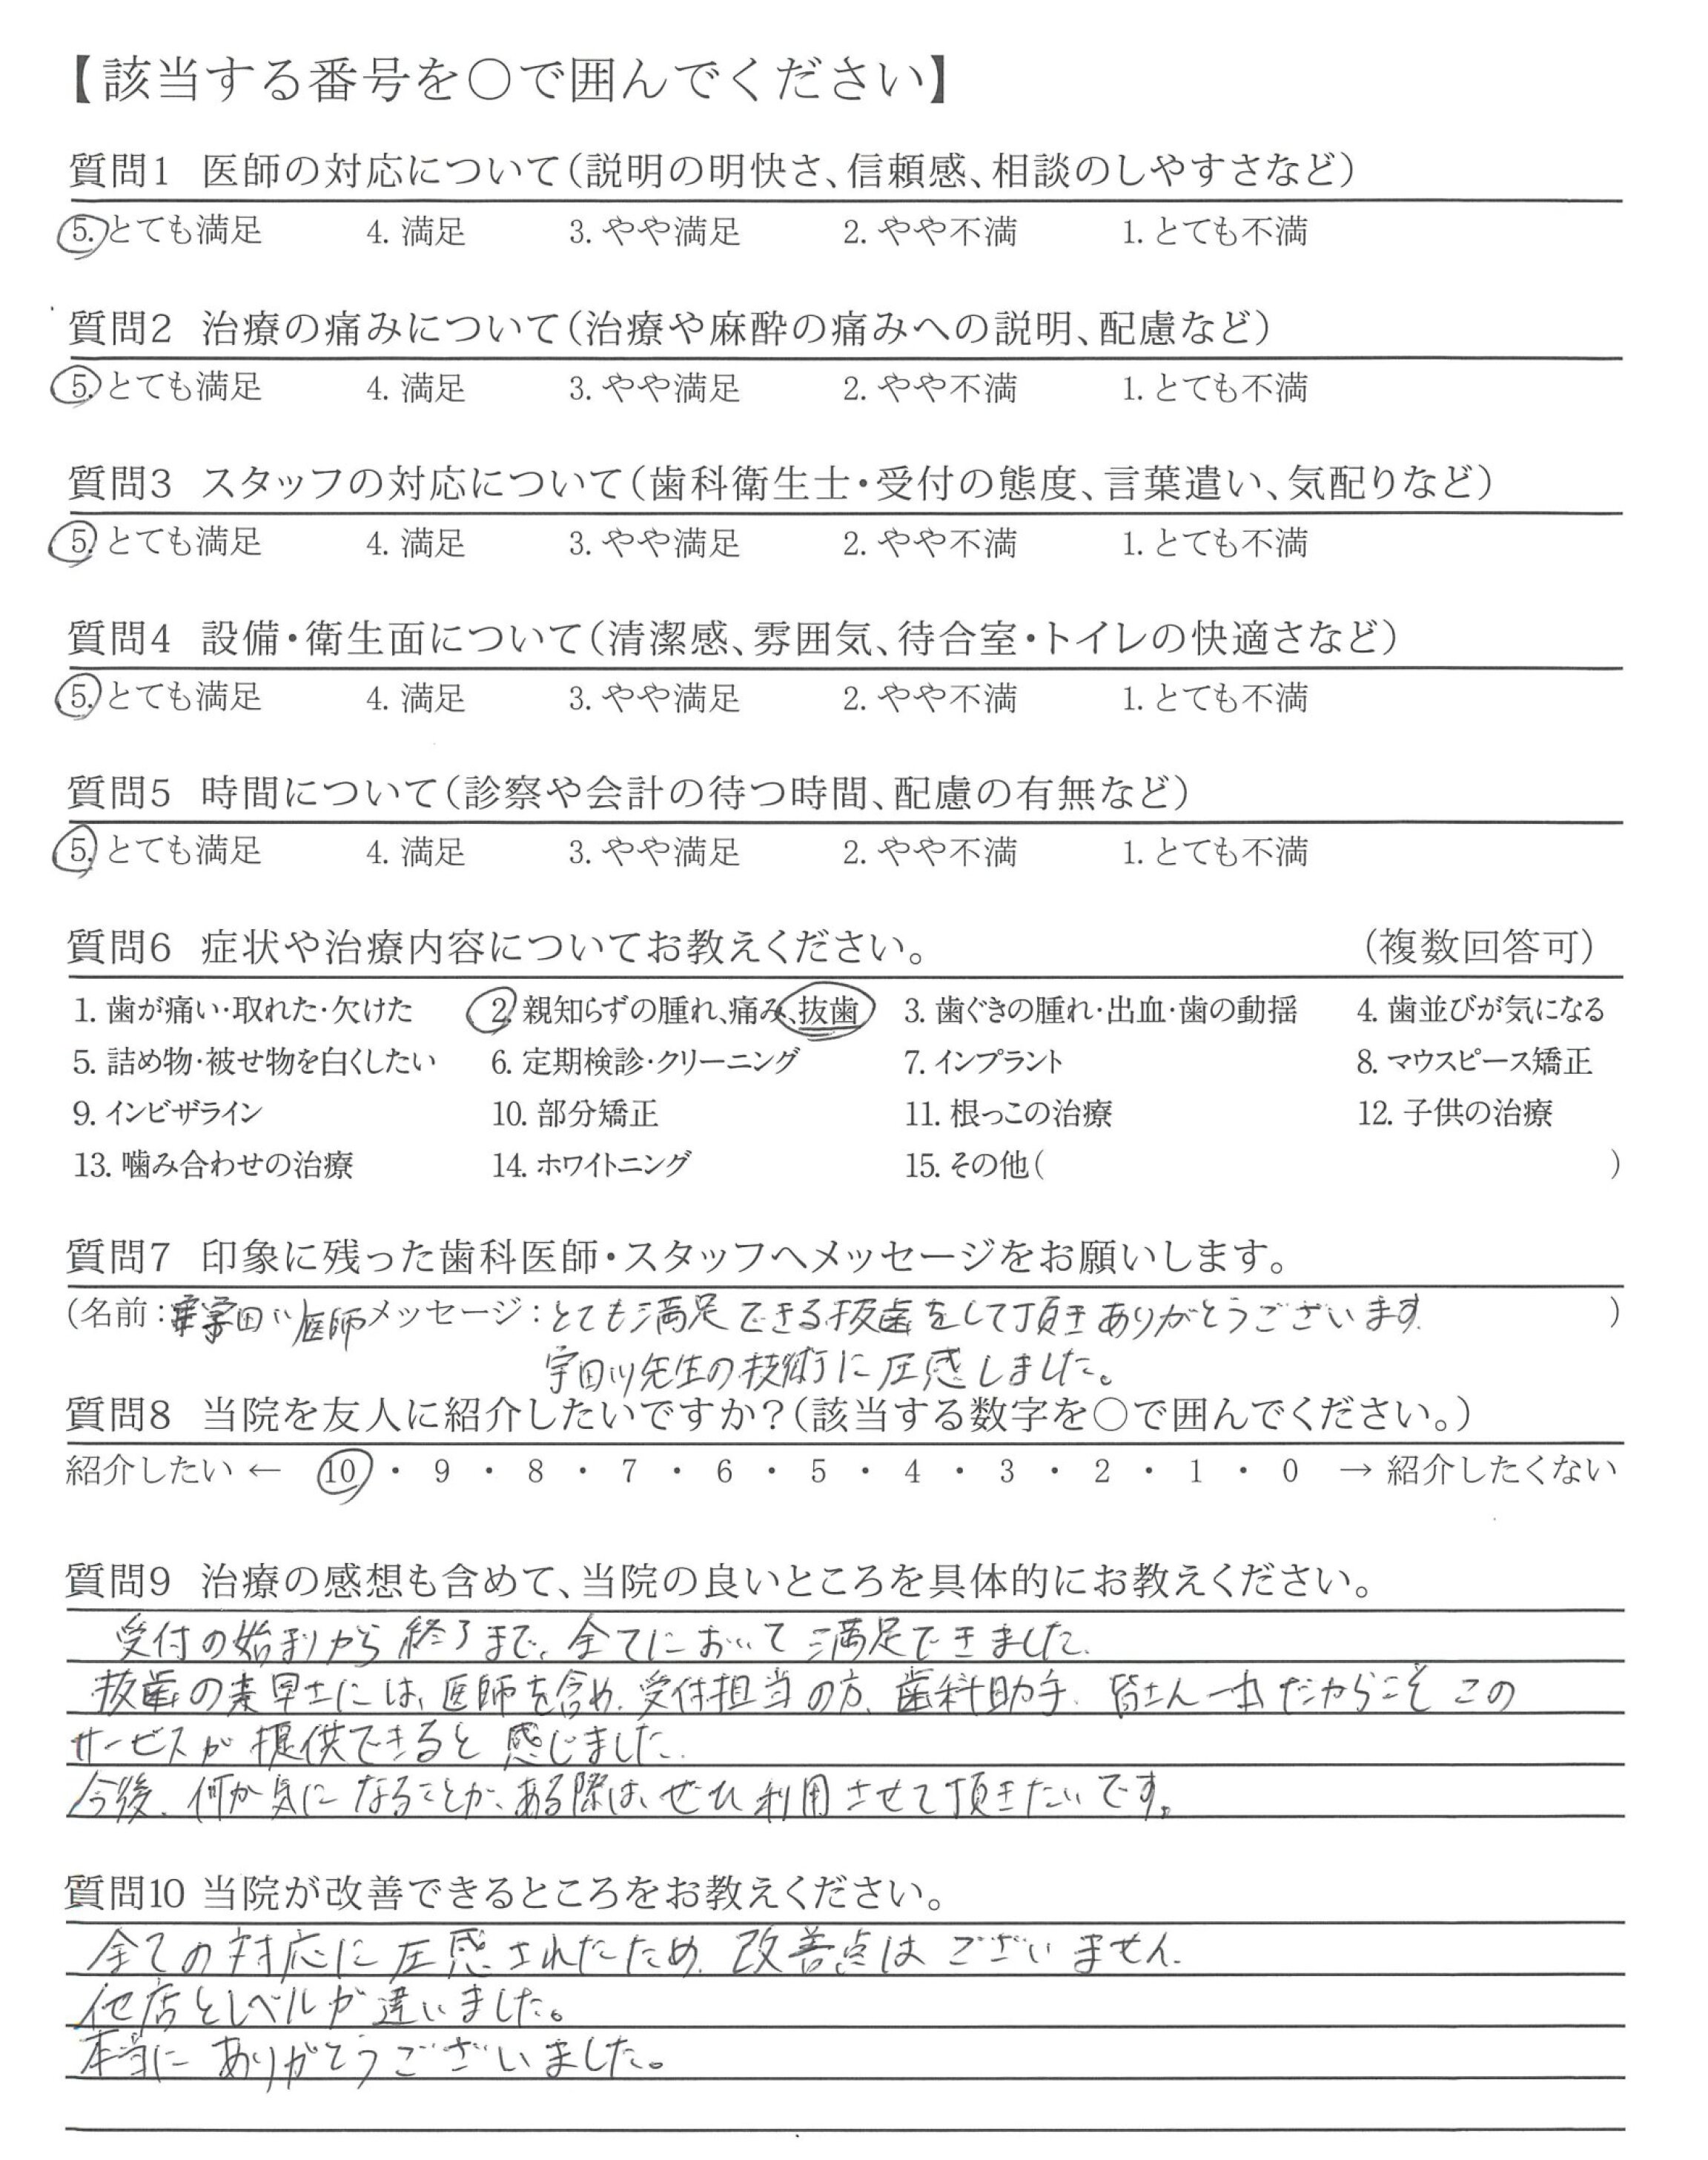 【該当する番号を○で囲んでください】
質問1 医師の対応について(説明の明快さ、信頼感、相談のしやすさなど)
5. とても満足 4. 満足 3. やや満足 2. やや不満 1. とても不満
質問2 治療の痛みについて(治療や麻酔の痛みへの説明、配慮など)
5. とても満足 4. 満足 3. やや満足 2. やや不満 1. とても不満
質問3 スタッフの対応について(歯科衛生士・受付の態度、言葉遣い、気配りなど)
5. とても満足 4. 満足 3. やや満足 2. やや不満 1. とても不満
質問4 設備・衛生面について(清潔感、雰囲気、待合室・トイレの快適さなど)
5. とても満足 4. 満足 3. やや満足 2. やや不満 1. とても不満
質問5 時間について(診察や会計の待つ時間、配慮の有無など)
5. とても満足 4. 満足 3. やや満足 2. やや不満 1. とても不満
質問6 症状や治療内容についてお教えください。 (複数回答可)
1. 歯が痛い・取れた・欠けた 2. 親知らずの腫れ、痛み、抜歯 3. 歯ぐきの腫れ・出血・歯の動揺 4. 歯並びが気になる
5. 詰め物・被せ物を白くしたい 6. 定期検診・クリーニング 7. インプラント 8. マウスピース矯正
9. インビザライン 10. 部分矯正 11. 根っこの治療 12. 子供の治療
13. 噛み合わせの治療 14. ホワイトニング 15. その他( )
質問7 印象に残った歯科医師・スタッフへメッセージをお願いします。
(名前：宇田川医師 メッセージ：とても満足できる抜歯をして頂きありがとうございます. )
宇田川先生の技術に圧感しました。
質問8 当院を友人に紹介したいですか？(該当する数字を○で囲んでください。)
紹介したい ← 10 ・ 9 ・ 8 ・ 7 ・ 6 ・ 5 ・ 4 ・ 3 ・ 2 ・ 1 ・ 0 → 紹介したくない
質問9 治療の感想も含めて、当院の良いところを具体的にお教えください。
受付の始まりから終了まで、全てにおいて満足できました.
抜歯の素早さには、医師を含め、受付担当の方、歯科助手、皆さん一丸だからこそこの
サービスが提供できると感じました.
今後、何か気になることが、ある際は、ぜひ利用させて頂きたいです。
質問10 当院が改善できるところをお教えください。
全ての対応に圧感されたため、改善点はございません.
他店とレベルが違いました。
本当にありがとうございました。